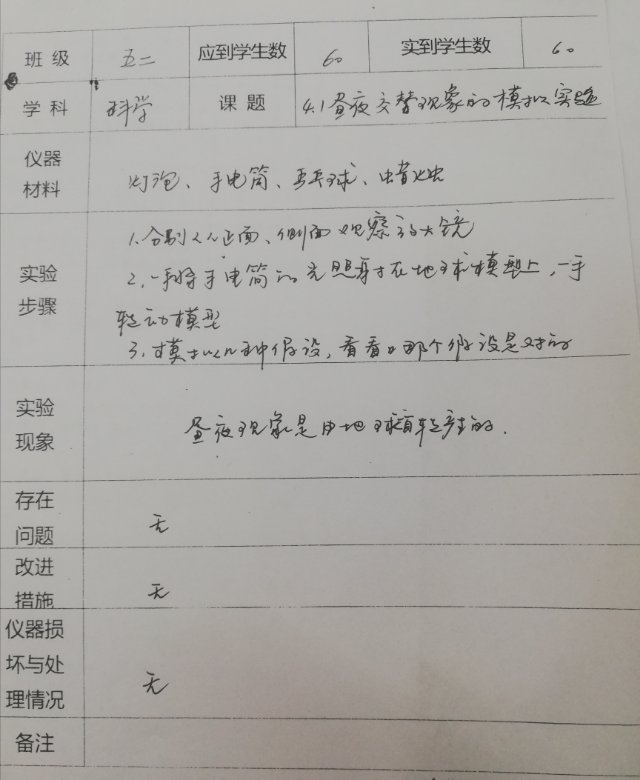 班级 五二 应到学生数 60 实到学生数 60
学科 科学 课题 4.1昼夜交替现象的模拟实验
仪器
材料
灯泡、手电筒、乒乓球、蜡烛
实验
步骤
1.分别从正面、侧面观察放大镜
2.一手将手电筒的光照射在地球模型上,一手
转动模型
3.模拟几种假设,看看哪个假设是对的
实验
现象
昼夜现象是由地球自转产生的.
存在
问题
无
改进
措施
无
仪器损
坏与处
理情况
无
备注